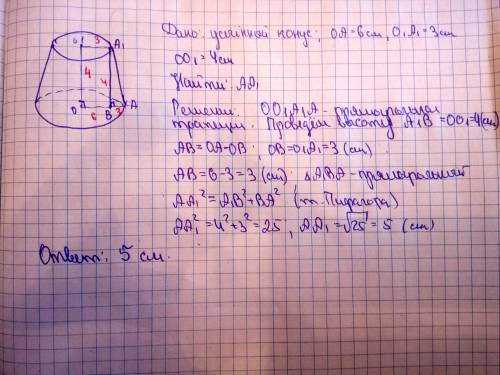 Дано: усечённый конус; OA=6см, O₁A₁=3см
OO₁=4см
Найти: AA₁
Решение: OO₁A₁A - прямоугольная
трапеция. Проведём высоту A₁B=OO₁=4(см)
AB=OA-OB; OB=O₁A₁=3(см)
AB=6-3=3(см); △ABA-прямоугольный
AA₁²=A₁B²+BA² (т.Пифагора)
AA₁²=4²+3²=25, AA₁=√25=5 (см)
Ответ: 5 см.
O₁ 3 A₁
4 4
O B 3 A
6